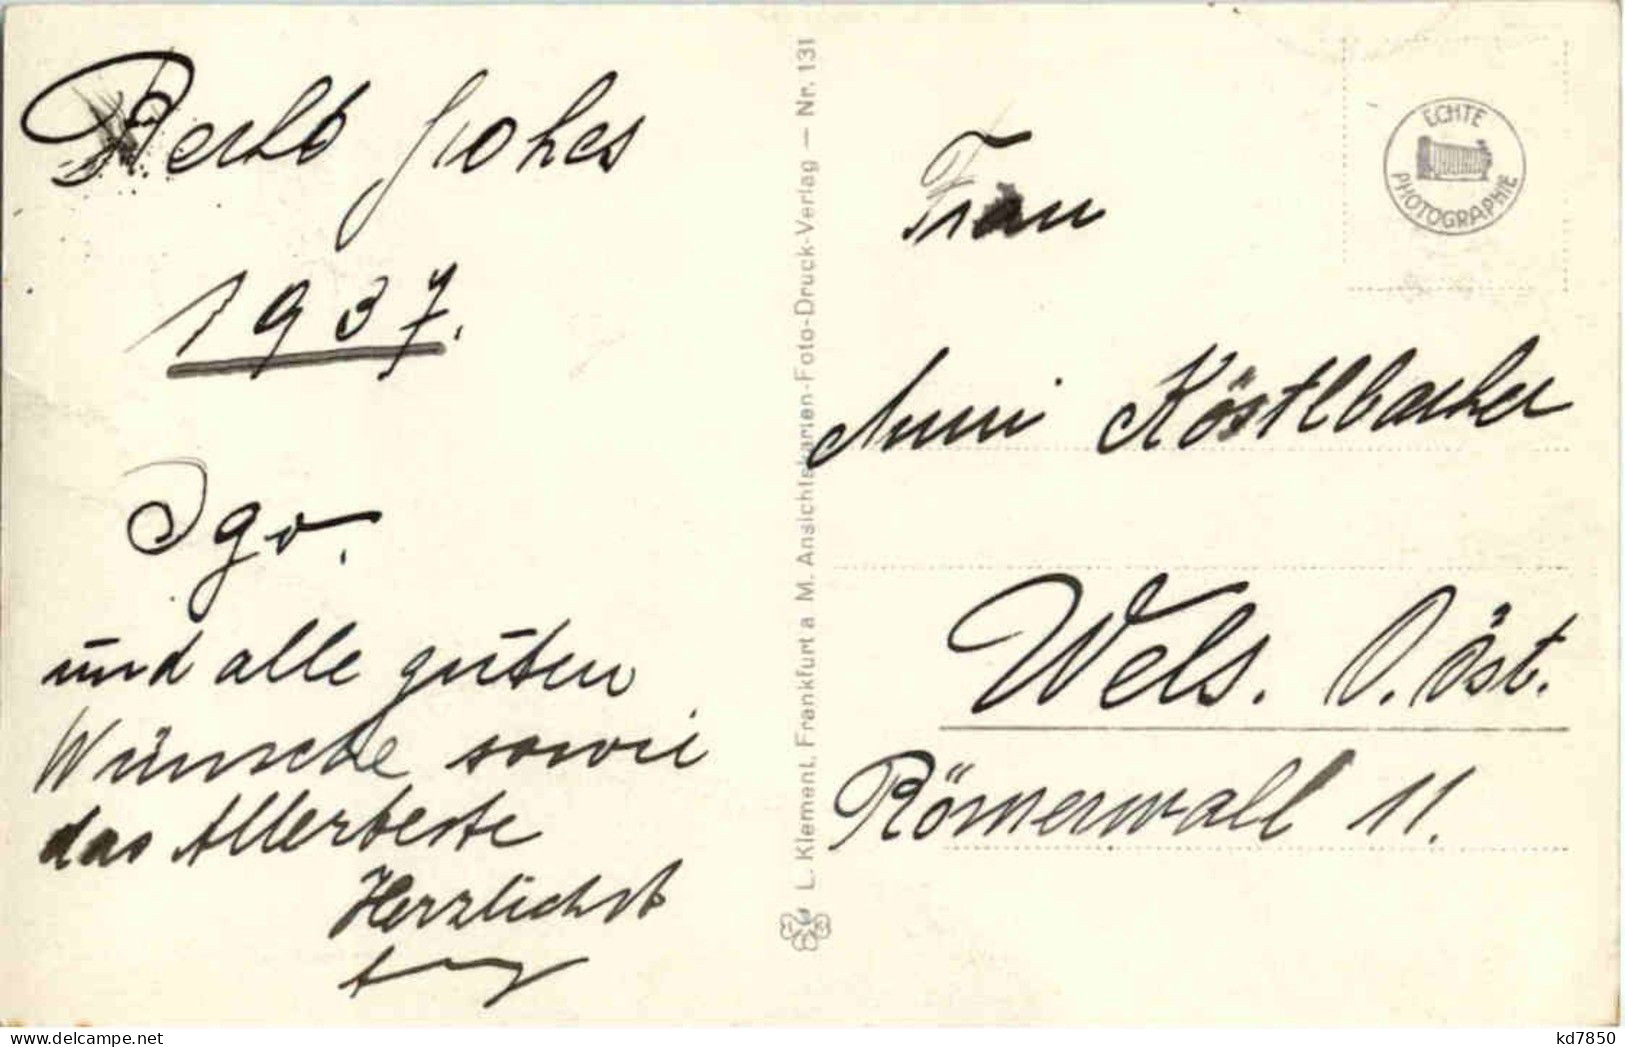 Recht frohes
1937.
Igo.
und alle guten
Wünsche sowie
das Allerbeste
Herzlichst
L. Klement, Frankfurt a M. Ansichtskarten-Foto-Druck-Verlag — Nr. 131
ECHTE
PHOTOGRAPHIE
Frau
Anni Köstlbacher
Wels. O. Öst.
Römerwall 11.
kd7850